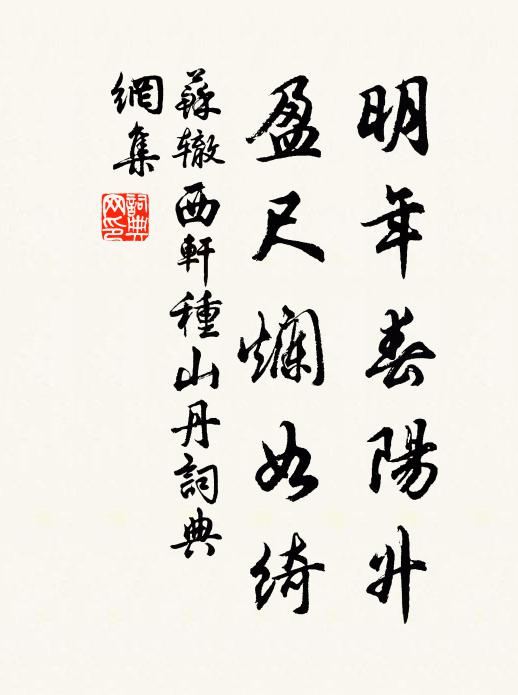 明年春陽升
盈尺爛如綺
蘇辙西軒種山丹詞典
網集
詞典网印